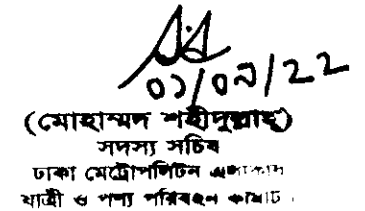 ০১/০৯/২২
(মোহাম্মদ শহীদুল্লাহ্)
সদস্য সচিব
ঢাকা মেট্রোপলিটন এলাকায়
যাত্রী ও পণ্য পরিবহন কমিটি।